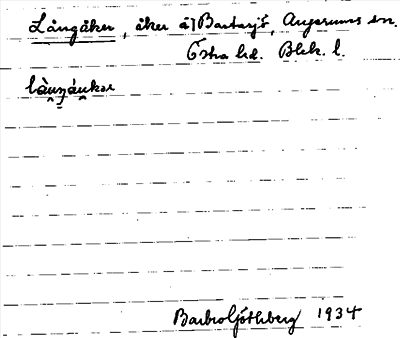 Långåker, åker å Bastasjö, Augerums sn.
Östra hd. Blek. l.
làuŋáukər
Barbro Götlberg 1934